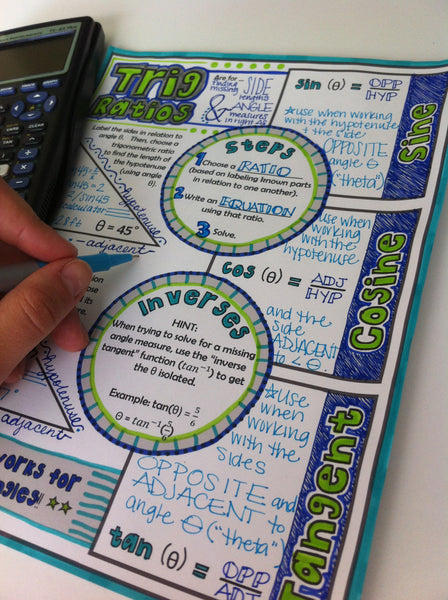 Trig
Ratios
Are for
finding
missing
SIDE
lengths
&
ANGLE
measures
in right △s
Label the sides in relation to
angle θ. Then, choose a
trigonometric ratio
to find the length of
the hypotenuse
(using angle
θ).
hypotenuse
θ = 45°
adjacent
Steps
1 Choose a RATIO
(based on labeling known parts
in relation to one another).
2 Write an EQUATION
using that ratio.
3 Solve.
Inverses
HINT:
When trying to solve for a missing
angle measure, use the "inverse
tangent" function (tan⁻¹) to get
the θ isolated.
Example: tan(θ) = 5/6
θ = tan⁻¹(5/6)
hypotenuse
adjacent
works for
sin (θ) = OPP/HYP
★use when working
with the hypotenuse
+ the side
OPPOSITE
angle θ
("theta")
Sine
use when
working
with the
hypotenuse
cos (θ) = ADJ/HYP
and the
side
ADJACENT
to ∠ θ.
Cosine
★Use
when
working
with the
sides
OPPOSITE and
ADJACENT to
angle θ ("theta")
tan (θ) = OPP/ADJ
Tangent